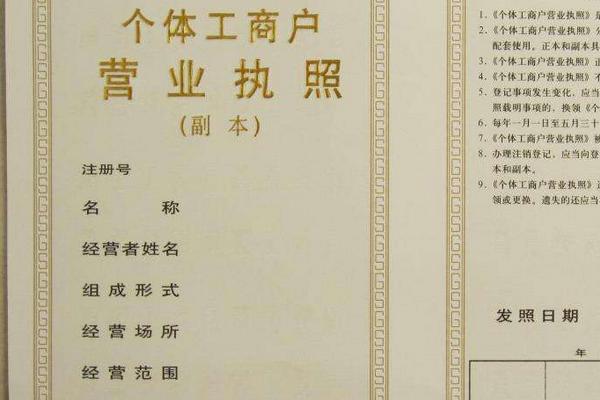 个体工商户
营业执照
(副本)
注册号
名 称
经营者姓名
组成形式
经营场所
经营范围
1. 《个体工商户营业执照》是
2. 《个体工商户营业执照》分
配套使用。正本和副本具
3. 《个体工商户营业执照》正
4. 《个体工商户营业执照》不
5. 登记事项发生变化，应当
照载明事项的，换领《个
6. 每年一月一日至五月三十
7. 《个体工商户营业执照》被
8. 办理注销登记，应当向登
本和副本。
9. 《个体工商户营业执照》遗
领或更换。遗失的还应当
发照日期
年